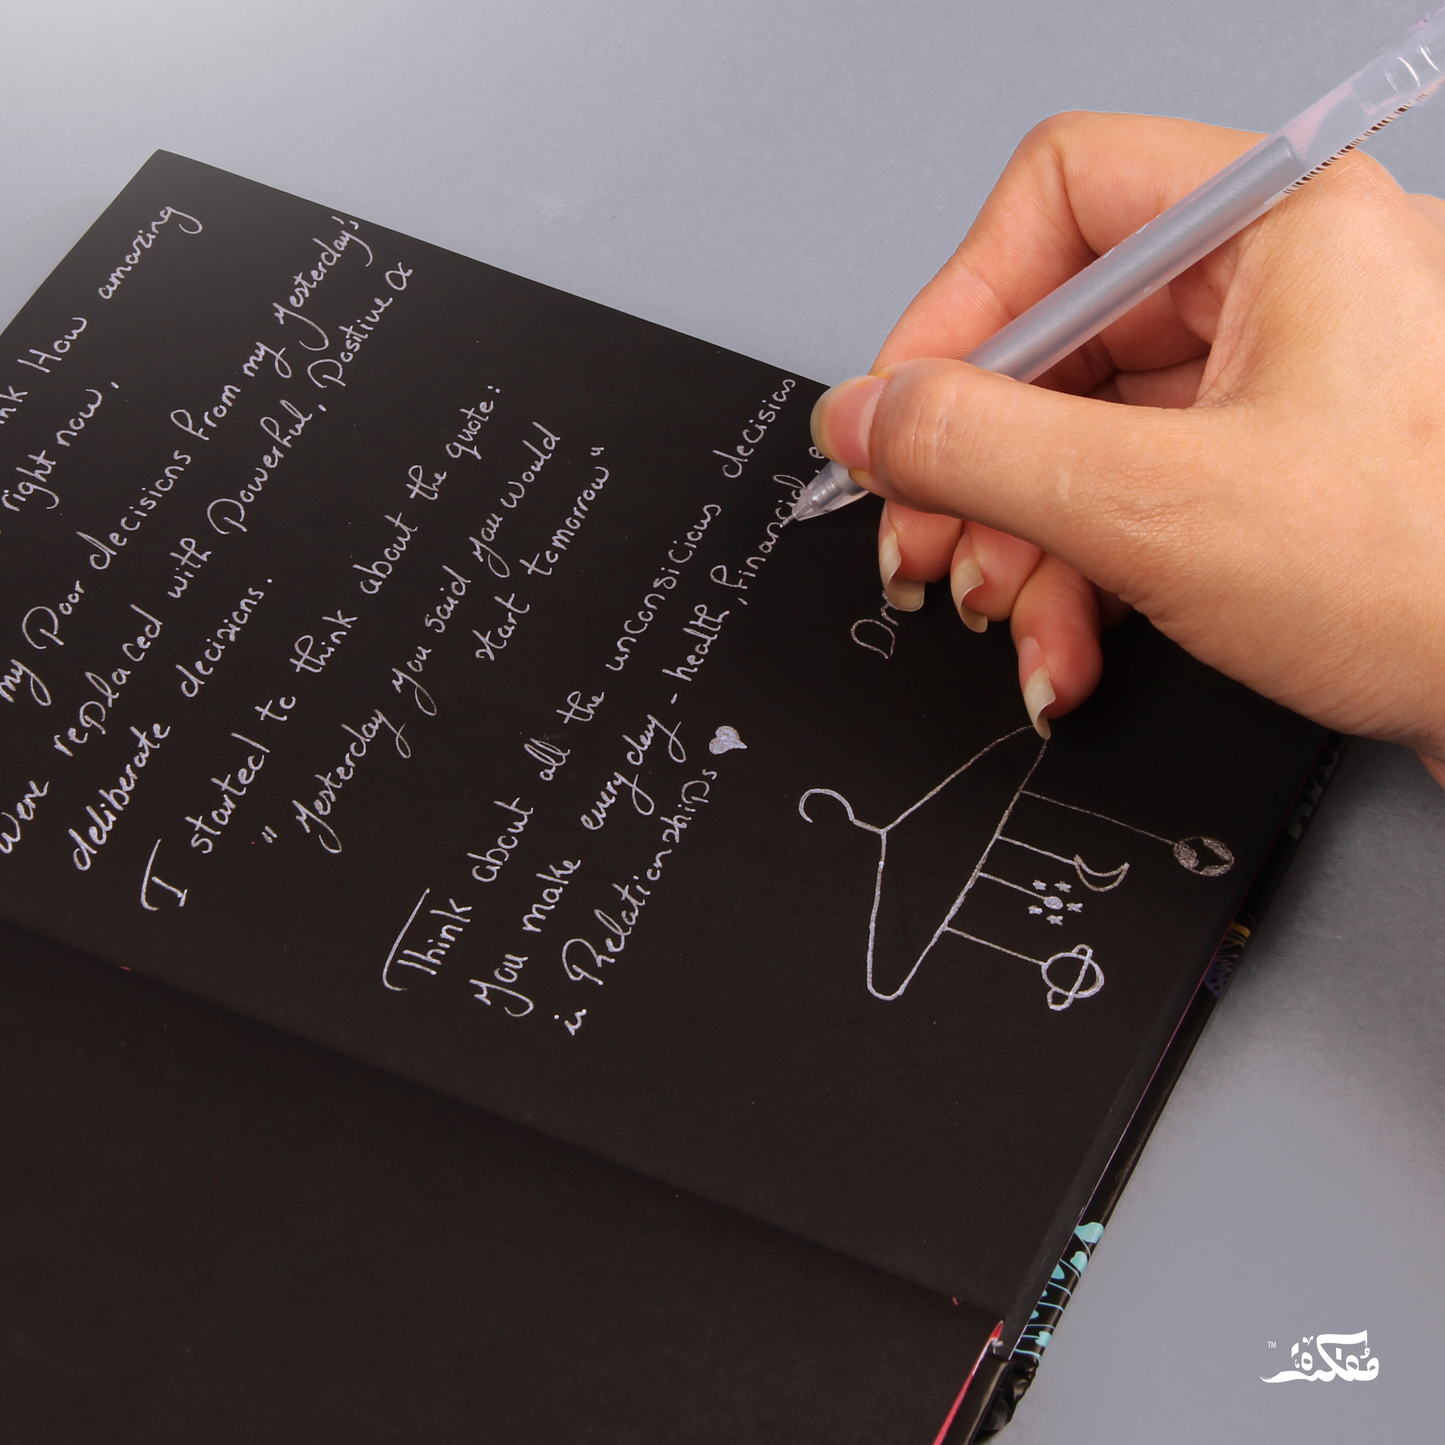 How amazing
right now.
my Poor decisions from my yesterday's
were replaced with Powerful, Positive &
deliberate decisions.
I started to think about the quote:
"yesterday you said you would
start tomorrow"
Think about all the unconsicious decisions
you make every day - health, financial,
in Relationships
Dr
مُفكرة
TM